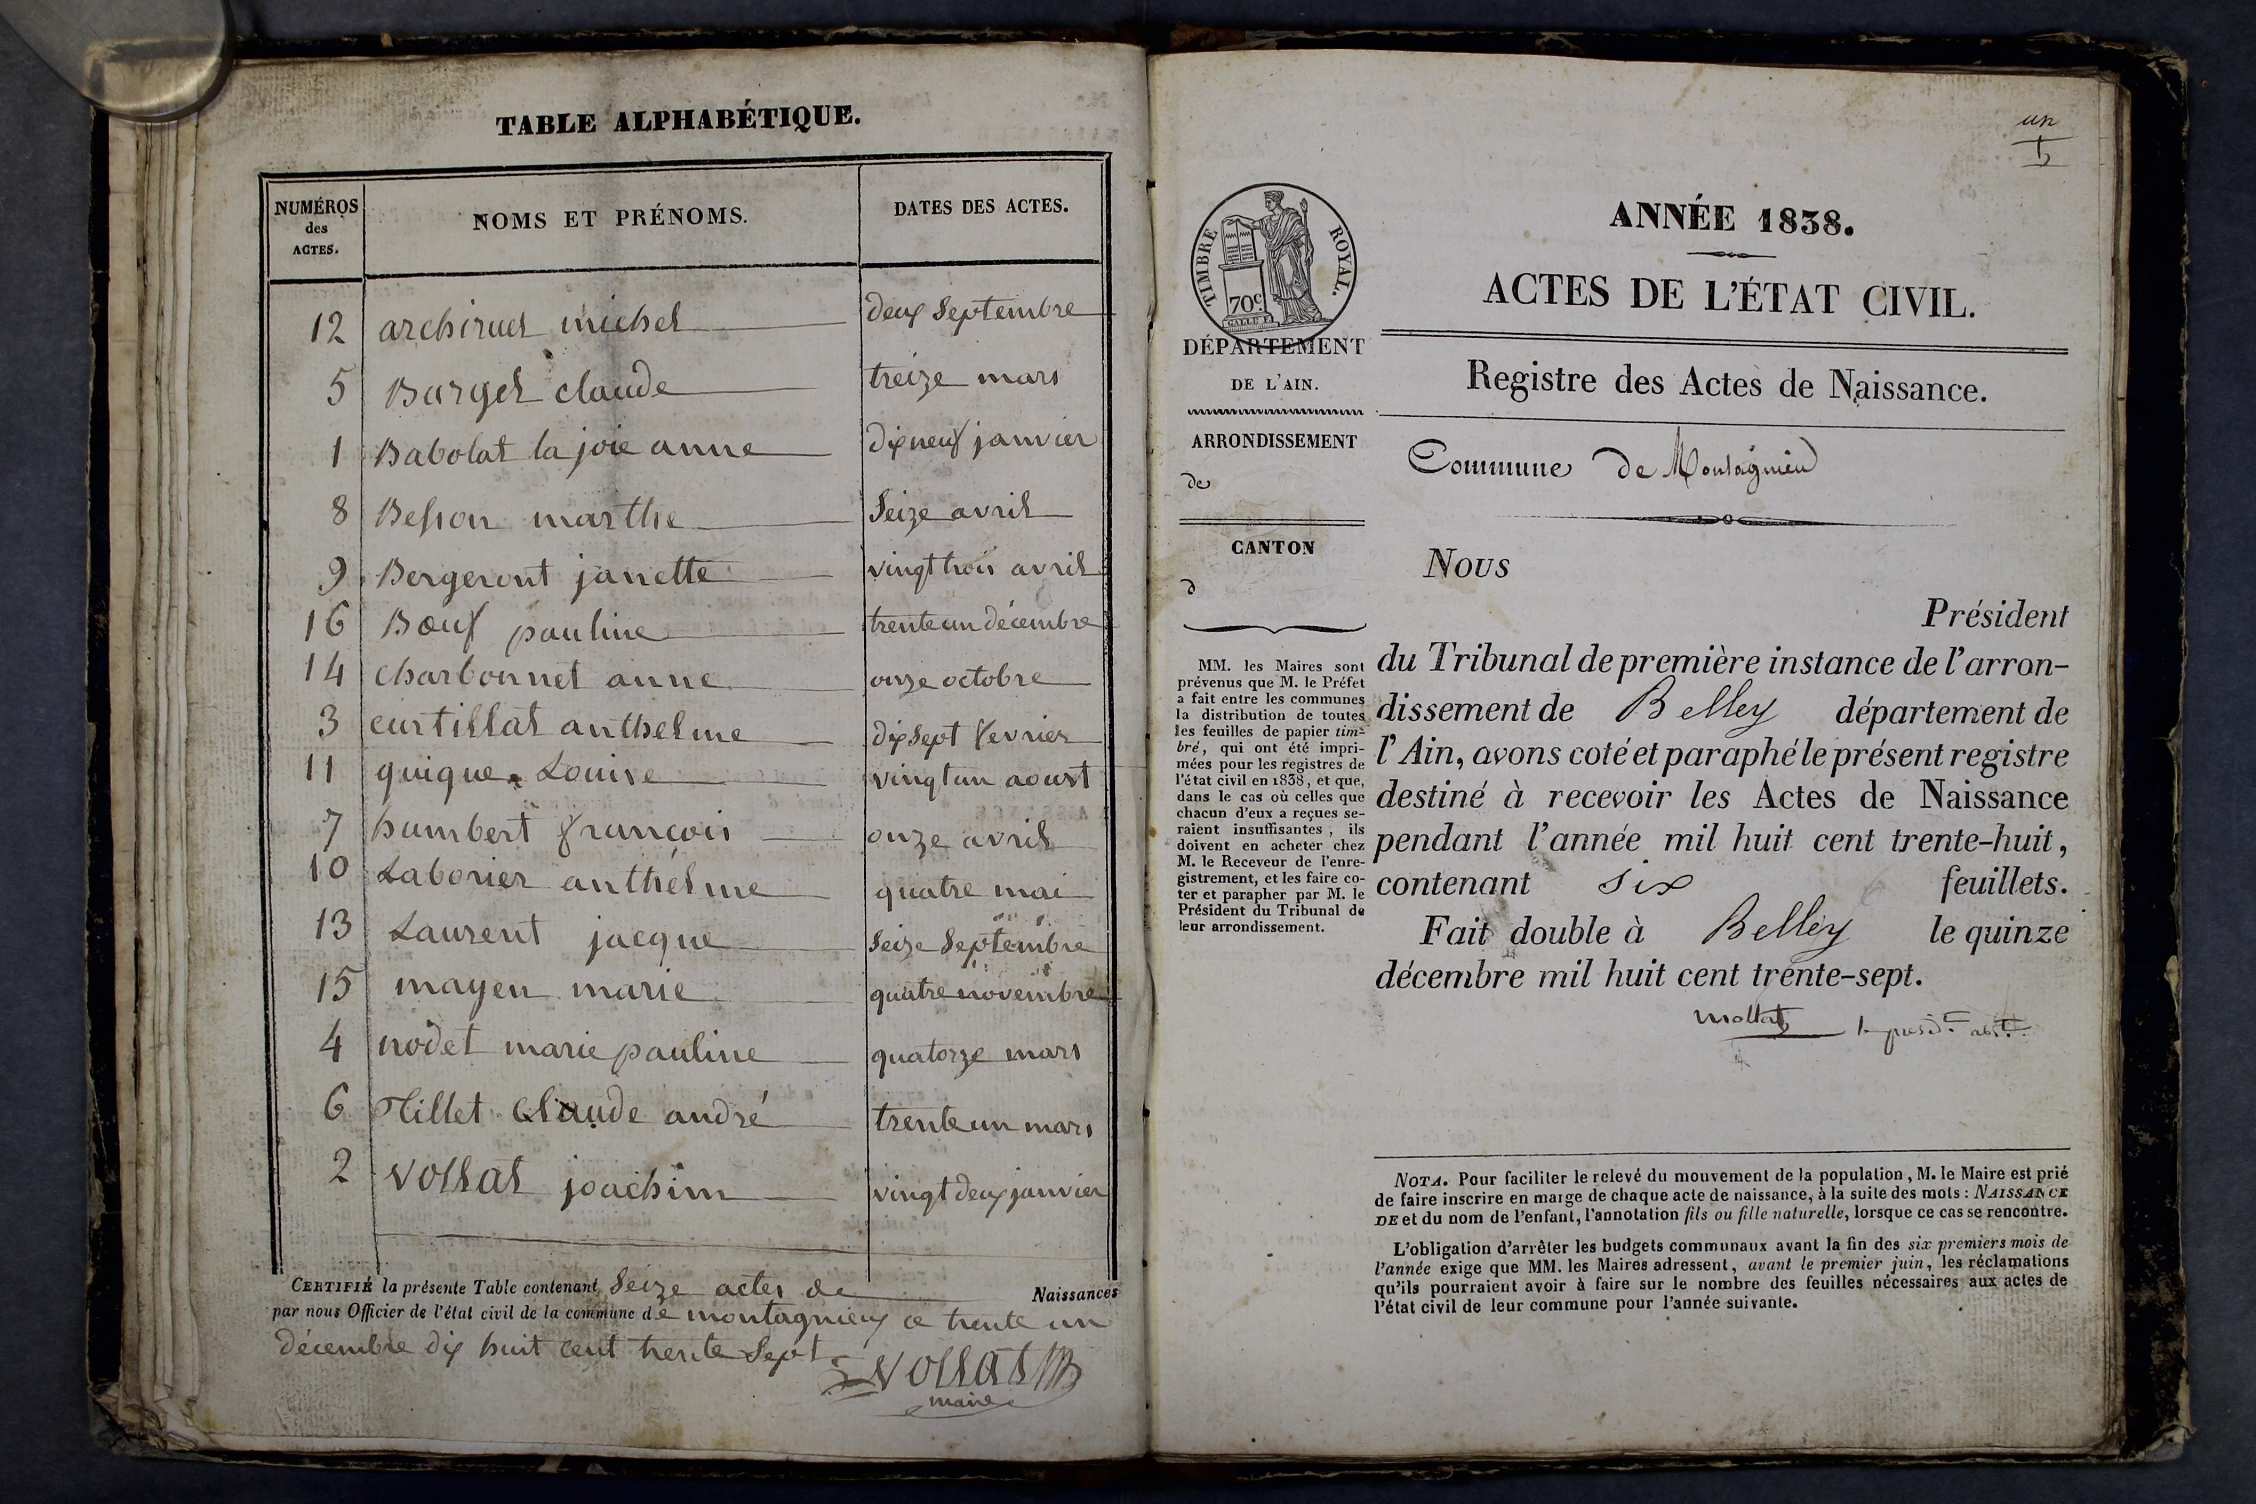 TABLE ALPHABÉTIQUE.
NUMÉROS des ACTES. NOMS ET PRÉNOMS. DATES DES ACTES.
12 archiruel michel deux Septembre
5 Burget claude treize mars
1 Babolat la joie anne dix neuf janvier
8 Besson marthe Seize avril
9 Bergeront janette vingt trois avril
16 Bœuf pauline trente un décembre
14 charbonnet anne onze octobre
3 curtillat anthelme dix sept fevrier
11 guigue Louise vingt un aoust
7 humbert françois onze avril
10 Laborier anthélme quatre mai
13 Laurent jacque Seize Septembre
15 mayen marie quatre novembre
4 nodet marie pauline quatorze mars
6 Tillet Claude andré trente un mars
2 vollat joachim vingt deux janvier
CERTIFIÉ la présente Table contenant Seize actes de Naissances
par nous Officier de l'état civil de la commune de montagnieux ce trente un
décembre dix huit cent trente Sept
vollat
maire
un
TIMBRE ROYAL.
70c
DÉPARTEMENT
DE L'AIN.
ARRONDISSEMENT
de
CANTON
d
MM. les Maires sont
prévenus que M. le Préfet
a fait entre les communes
la distribution de toutes
les feuilles de papier tim-
bré, qui ont été impri-
mées pour les registres de
l'état civil en 1838, et que,
dans le cas où celles que
chacun d'eux a reçues se-
raient insuffisantes, ils
doivent en acheter chez
M. le Receveur de l'enre-
gistrement, et les faire co-
ter et parapher par M. le
Président du Tribunal de
leur arrondissement.
ANNÉE 1838.
ACTES DE L'ÉTAT CIVIL.
Registre des Actes de Naissance.
Commune de Montagnieu
Nous
Président
du Tribunal de première instance de l'arron-
dissement de Belley département de
l'Ain, avons coté et paraphé le présent registre
destiné à recevoir les Actes de Naissance
pendant l'année mil huit cent trente-huit,
contenant six feuillets.
Fait double à Belley le quinze
décembre mil huit cent trente-sept.
NOTA. Pour faciliter le relevé du mouvement de la population, M. le Maire est prié
de faire inscrire en marge de chaque acte de naissance, à la suite des mots : NAISSANCE
DE et du nom de l'enfant, l'annotation fils ou fille naturelle, lorsque ce cas se rencontre.
L'obligation d'arrêter les budgets communaux avant la fin des six premiers mois de
l'année exige que MM. les Maires adressent, avant le premier juin, les réclamations
qu'ils pourraient avoir à faire sur le nombre des feuilles nécessaires aux actes de
l'état civil de leur commune pour l'année suivante.